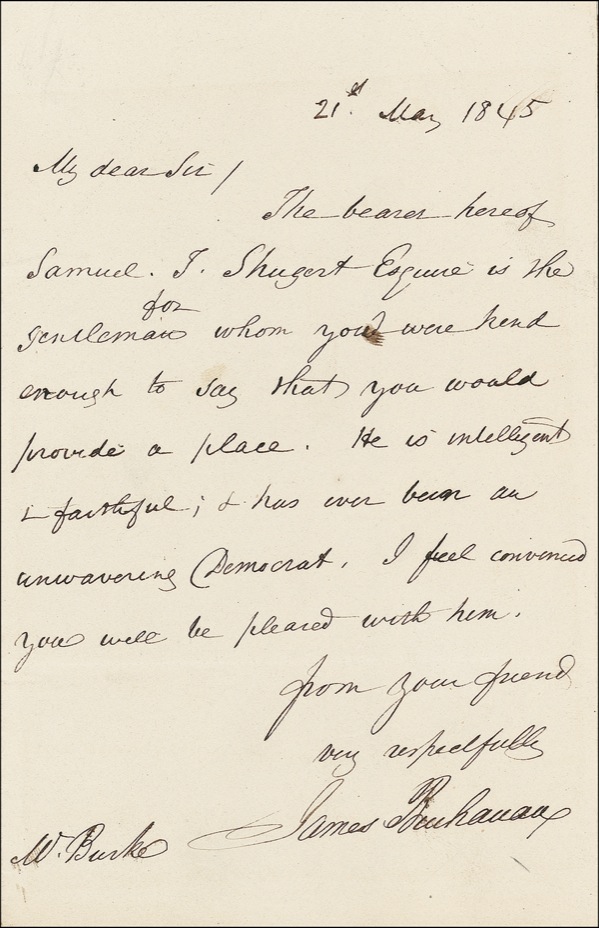 21st. May 1845
My dear Sir/
The bearer hereof
Samuel. T. Shugert Esquire is the
for
gentleman whom you were kind
enough to say that you would
provide a place. He is intelligent
& faithful; & has ever been an
unwavering Democrat. I feel convinced
you will be pleased with him.
from your friend
very respectfully
James Buchanan
W. Burke